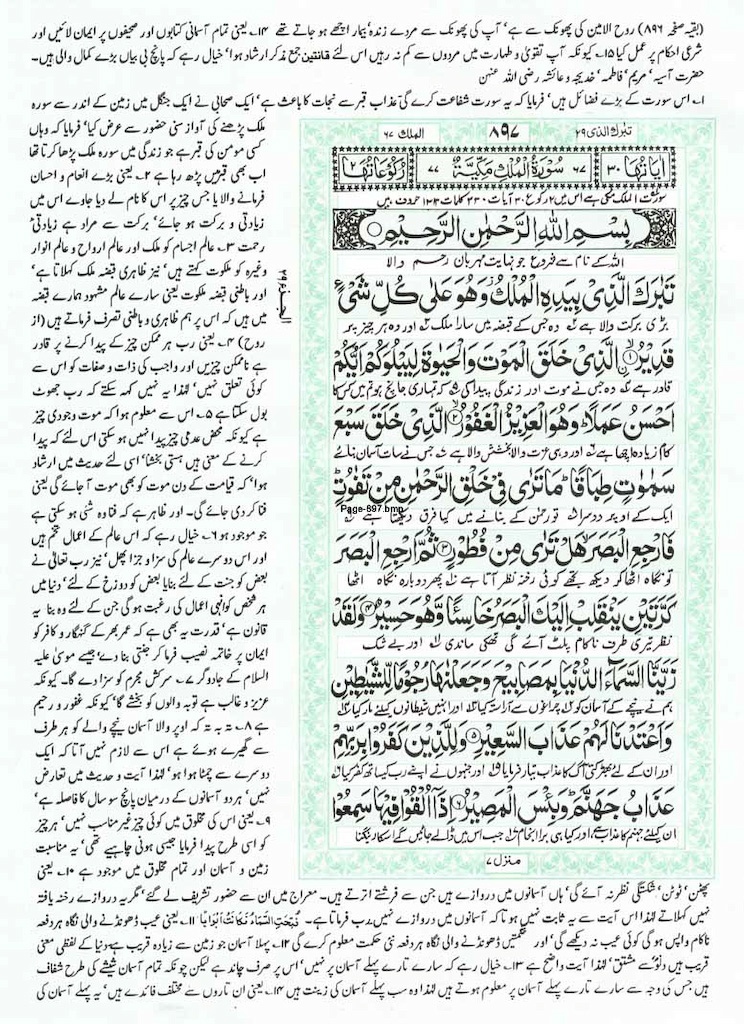 (بقیہ صفحہ ۸۹۶) روح الامین کی پھونک سے ہے، آپ کی پھونک سے مردے زندہ، بیمار اچھے ہو جاتے تھے ۱۴۔ یعنی تمام آسمانی کتابوں اور صحیفوں پر ایمان لائیں اور
شرعی احکام پر عمل کیا ۱۵۔ کیونکہ آپ تقویٰ و طہارت میں مردوں سے کم نہ رہیں اس لئے قانتین جمع مذکر ارشاد ہوا، خیال رہے کہ پانچ بی بیاں بڑے کمال والی ہیں۔
حضرت آسیہ، مریم، فاطمہ، خدیجہ و عائشہ رضی اللہ عنہن
۱۔ اس سورت کے بڑے فضائل ہیں، فرمایا کہ یہ سورت شفاعت کرے گی عذاب قبر سے نجات کا باعث ہے، ایک صحابی نے ایک جنگل میں زمین کے اندر سے سورہ
تبٰرک الذی ۲۹
۸۹۷
الملک ۶۷
اٰیاتها ۳۰
۶۷ سُوْرَةُ الْمُلْكِ مَكِّيَّةٌ ۷۷
رکوعاتها ۲
سورت الملک مکی ہے اس میں ۲ رکوع ۳۰ آیات ۳۳۰ کلمات ۱۳۱۳ حروف ہیں
بِسْمِ اللهِ الرَّحْمٰنِ الرَّحِيْمِ
اللہ کے نام سے شروع جو نہایت مہربان رحم والا
تَبٰرَكَ الَّذِيْ بِيَدِهِ الْمُلْكُ وَهُوَ عَلٰى كُلِّ شَيْءٍ
بڑی برکت والا ہے وہ جس کے قبضہ میں سارا ملک اور وہ ہر چیز پر
قَدِيْرٌ ۱ الَّذِيْ خَلَقَ الْمَوْتَ وَالْحَيٰوةَ لِيَبْلُوَكُمْ اَيُّكُمْ
قادر ہے وہ جس نے موت اور زندگی پیدا کی کہ تمہاری جانچ ہو تم میں کس کا
اَحْسَنُ عَمَلًا وَهُوَ الْعَزِيْزُ الْغَفُوْرُ ۲ الَّذِيْ خَلَقَ سَبْعَ
کام زیادہ اچھا ہے اور وہی عزت والا بخشش والا ہے جس نے سات آسمان بنائے
سَمٰوٰتٍ طِبَاقًا مَا تَرٰى فِيْ خَلْقِ الرَّحْمٰنِ مِنْ تَفٰوُتٍ
Page-897.bmp
ایک کے اوپر دوسرا تو رحمٰن کے بنانے میں کیا فرق دیکھتا ہے
فَارْجِعِ الْبَصَرَ هَلْ تَرٰى مِنْ فُطُوْرٍ ۳ ثُمَّ ارْجِعِ الْبَصَرَ
تو نگاہ اٹھا کر دیکھ تجھے کوئی رخنہ نظر آتا ہے پھر دوبارہ نگاہ اٹھا
كَرَّتَيْنِ يَنْقَلِبْ اِلَيْكَ الْبَصَرُ خَاسِئًا وَّهُوَ حَسِيْرٌ ۴ وَلَقَدْ
نظر تیری طرف ناکام پلٹ آئے گی تھکی ماندی اور بے شک
زَيَّنَّا السَّمَآءَ الدُّنْيَا بِمَصَابِيْحَ وَجَعَلْنٰهَا رُجُوْمًا لِّلشَّيٰطِيْنِ
ہم نے نیچے کے آسمان کو چراغوں سے آراستہ کیا اور انہیں شیطانوں کیلئے مار کیا
وَاَعْتَدْنَا لَهُمْ عَذَابَ السَّعِيْرِ ۵ وَلِلَّذِيْنَ كَفَرُوْا بِرَبِّهِمْ
اور ان کے لئے بھڑکتی آگ کا عذاب تیار فرمایا اور جنہوں نے اپنے رب کیساتھ کفر کیا
عَذَابُ جَهَنَّمَ وَبِئْسَ الْمَصِيْرُ ۶ اِذَآ اُلْقُوْا فِيْهَا سَمِعُوْا
ان کیلئے جہنم کا عذاب ہے اور کیا ہی برا انجام جب اس میں ڈالے جائیں گے اس کا رینکنا
منزل ۷
ملک پڑھنے کی آواز سنی حضور سے عرض کیا، فرمایا کہ وہاں
کسی مومن کی قبر ہے جو زندگی میں سورہ ملک پڑھا کرتا تھا
اب بھی قبر میں پڑھ رہا ہے ۲۔ یعنی بڑے انعام و احسان
فرمانے والا یا جس چیز پر اس کا نام لے دیا جاوے اس میں
زیادتی و برکت ہو جائے، برکت سے مراد ہے زیادتی
رحمت ۳۔ عالم اجسام کو ملک اور عالم ارواح و عالم انوار
وغیرہ کو ملکوت کہتے ہیں، نیز ظاہری قبضہ ملک کہلاتا ہے،
اور باطنی قبضہ ملکوت یعنی سارے عالم مشہود ہمارے قبضہ
میں ہیں کہ اس پر ہم ظاہری و باطنی تصرف فرماتے ہیں (از
روح) ۴۔ یعنی رب ہر ممکن چیز کے پیدا کرنے پر قادر
ہے ناممکن چیزیں اور واجب کی ذات و صفات کو اس سے
کوئی تعلق نہیں، لہٰذا یہ نہیں کہہ سکتے کہ رب جھوٹ
بول سکتا ہے ۵۔ اس سے معلوم ہوا کہ موت وجودی چیز
ہے کیونکہ محض عدمی چیز پیدا نہیں ہو سکتی اس لئے کہ پیدا
کرنے کے معنی ہیں ہستی بخشنا، اسی لئے حدیث میں ارشاد
ہوا، کہ قیامت کے دن موت کو بھی موت آ جائے گی یعنی
فنا کر دی جائے گی۔ اور ظاہر ہے کہ فنا وہ شئی ہو سکتی ہے
جو موجود ہو ۶۔ خیال رہے کہ اس عالم کے اعمال تخم ہیں
اور اس دوسرے عالم کی سزا و جزا پھل، نیز رب تعالیٰ نے
بعض کو جنت کے لئے بنایا بعض کو دوزخ کے لئے، دنیا میں
ہر شخص کو انہی اعمال کی رغبت ہو گی جن کے لئے وہ بنا یہ
قانون ہے، قدرت یہ بھی ہے کہ عمر بھر کے گنہگار و کافر کو
ایمان پر خاتمہ نصیب فرما کر جنتی بنا دے، جیسے موسیٰ علیہ
السلام کے جادوگر ۷۔ سرکش مجرم کو سزا دے گا۔ کیونکہ
عزیز و غالب ہے توبہ والوں کو بخشے گا، کیونکہ غفور و رحیم
ہے ۸۔ تہ بہ تہ کہ اوپر والا آسمان نیچے والے کو ہر طرف
سے گھیرے ہوئے ہے اس سے لازم نہیں آتا کہ ایک
دوسرے سے چمٹا ہوا ہو، لہٰذا آیت و حدیث میں تعارض
نہیں، ہر دو آسمانوں کے درمیان پانچ سو سال کا فاصلہ ہے،
۹۔ یعنی اس کی مخلوق میں کوئی چیز غیر مناسب نہیں، ہر چیز
کو اسی طرح پیدا فرمایا جیسی ہونی چاہیے تھی، یہ مناسبت
زمین و آسمان اور تمام مخلوق میں موجود ہے ۱۰۔ یعنی
پھٹن، ٹوٹن، شکستگی نظر نہ آئے گی، ہاں آسمانوں میں دروازے ہیں جن سے فرشتے اترتے ہیں۔ معراج میں ان سے حضور تشریف لے گئے، مگر یہ دروازے رخنہ یا فتہ
نہیں کہلاتے لہٰذا اس آیت سے یہ ثابت نہیں ہوتا کہ آسمانوں میں دروازے نہیں، رب فرماتا ہے۔ فُتِحَتِ السَّمَاءُ فَكَانَتْ اَبْوَابًا ۱۱۔ یعنی عیب ڈھونڈنے والی نگاہ ہر دفعہ
ناکام واپس ہو گی کوئی عیب نہ دیکھے گی، اور حکمتیں ڈھونڈنے والی نگاہ ہر دفعہ نئی حکمت معلوم کرے گی ۱۲۔ پہلا آسمان جو زمین سے زیادہ قریب ہے، دنیا کے لفظی معنی
قریب ہیں دنوٌ سے مشتق، لہٰذا آیت واضح ہے ۱۳۔ خیال رہے کہ سارے تارے پہلے آسمان پر نہیں، اس پر صرف چاند ہے لیکن چونکہ تمام آسمان شیشے کی طرح شفاف
ہیں جس کی وجہ سے سارے تارے پہلے آسمان پر معلوم ہوتے ہیں لہٰذا وہ سب پہلے آسمان کی زینت ہیں ۱۴۔ یعنی ان تاروں سے مختلف فائدے ہیں، یہ پہلے آسمان کی